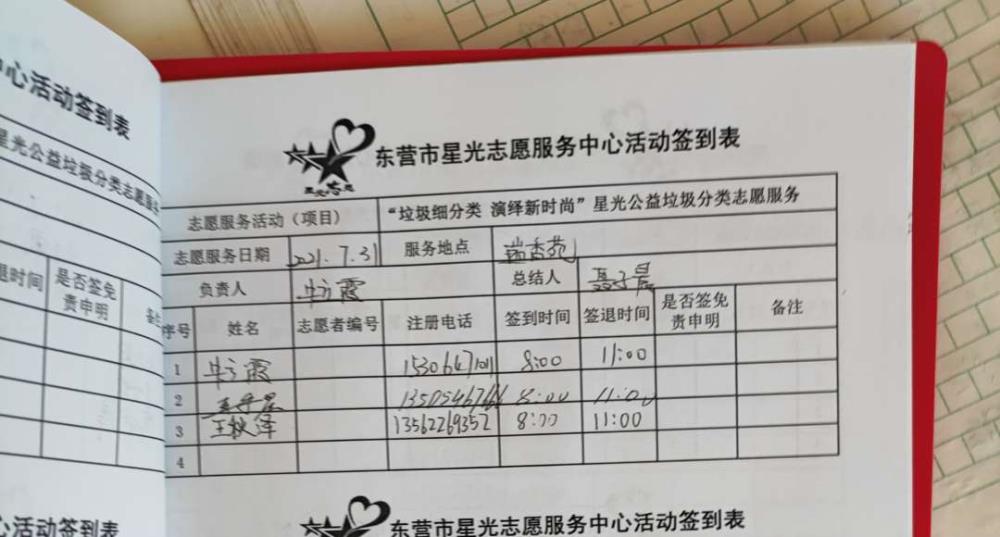 中心活动签到表
星光公益垃圾分类志愿服务
退时间 是否签免责申明 备注
东营市星光志愿服务中心活动签到表
志愿服务活动（项目） “垃圾细分类 演绎新时尚”星光公益垃圾分类志愿服务
志愿服务日期 2021.7.31 服务地点 瑞香苑
负责人 牛方霞 总结人
序号 姓名 志愿者编号 注册电话 签到时间 签退时间 是否签免责申明 备注
1 牛方霞 8:00 11:00
2 8:00 11:00
3 13562269352 8:00 11:00
4
心活动签到表
东营市星光志愿服务中心活动签到表